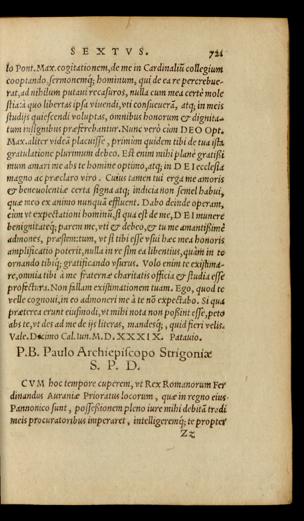 SEXTVS. 721
lo Pont. Max. cogitationem, de me in Cardinaliũ collegium
cooptando, sermonemq́; hominum, qui de ea re percrebue-
rat, ad nihilum putaui recasuros, nulla cum mea certè mole
stia: à quo libertas ipsa viuendi, vti consueuerã, atq; in meis
studijs quiescendi voluptas, omnibus honorum & dignita-
tum insignibus præferebantur. Nunc verò cùm DEO Opt.
Max. aliter videã placuisse, primùm quidem tibi de tua ista
gratulatione plurimum debeo. Est enim mihi planè gratissi
mum amari me abs te homine optimo, atq; in DEI ecclesia
magno ac præclaro viro. Cuius tamen tui erga me amoris
& beneuolentiæ certa signa atq; indicia non semel habui,
quæ meo ex animo nunquã effluent. Dabo deinde operam,
cùm vt expectationi hominũ, si qua est de me, DEI munere
benignitateq́; parem me, vti & debeo, & tu me amantissimè
admones, præstem: tum, vt si tibi esse vsui hæc mea honoris
amplificatio poterit, nulla in re sim ea libentius, quàm in te
ornando tibiq́; gratificando vsurus. Volo enim te existima-
re, omnia tibi à me fraternæ charitatis officia & studia esse
profectura. Non fallam existimationem tuam. Ego, quod te
velle cognoui, in eo admoneri me à te nõ expectabo. Si qua
præterea erunt eiusmodi, vt mihi nota non possint esse, peto
abs te, vt des ad me de ijs literas, mandesq́;, quid fieri velis.
Vale. Decimo Cal. Iun. M. D. XXXIX. Patauio.
P.B. Paulo Archiepiscopo Strigoniæ
S. P. D.
CVM hoc tempore cuperem, vt Rex Romanorum Fer
dinandus Auraniæ Prioratus locorum, quæ in regno eius
Pannonico sunt, possessionem pleno iure mihi debitã tradi
meis procuratoribus imperaret, intelligeremq́; te propter
Zz